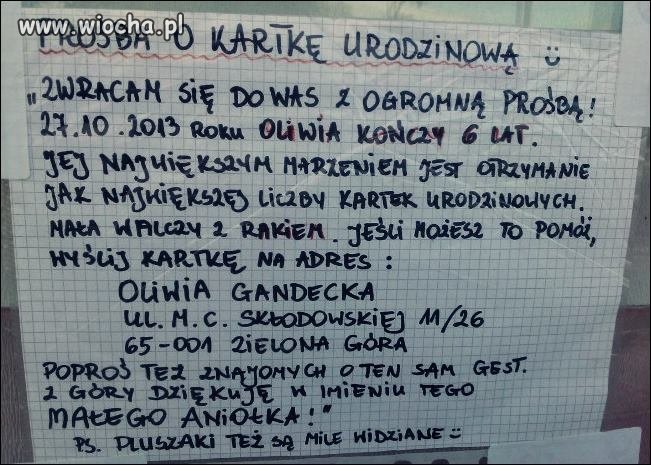 www.wiocha.pl
PROŚBA O KARTKĘ URODZINOWĄ
„ZWRACAM SIĘ DO WAS Z OGROMNĄ PROŚBĄ!
27.10.2013 ROKU OLIWIA KOŃCZY 6 LAT.
JEJ NAJWIĘKSZYM MARZENIEM JEST OTRZYMANIE
JAK NAJWIĘKSZEJ LICZBY KARTEK URODZINOWYCH.
MAŁA WALCZY Z RAKIEM. JEŚLI MOŻESZ TO POMÓŻ,
WYŚLIJ KARTKĘ NA ADRES :
OLIWIA GANDECKA
UL. M. C. SKŁODOWSKIEJ 11/26
65-001 ZIELONA GÓRA
POPROŚ TEŻ ZNAJOMYCH O TEN SAM GEST.
Z GÓRY DZIĘKUJĘ W IMIENIU TEGO
MAŁEGO ANIOŁKA!"
PS. PLUSZAKI TEŻ SĄ MILE WIDZIANE